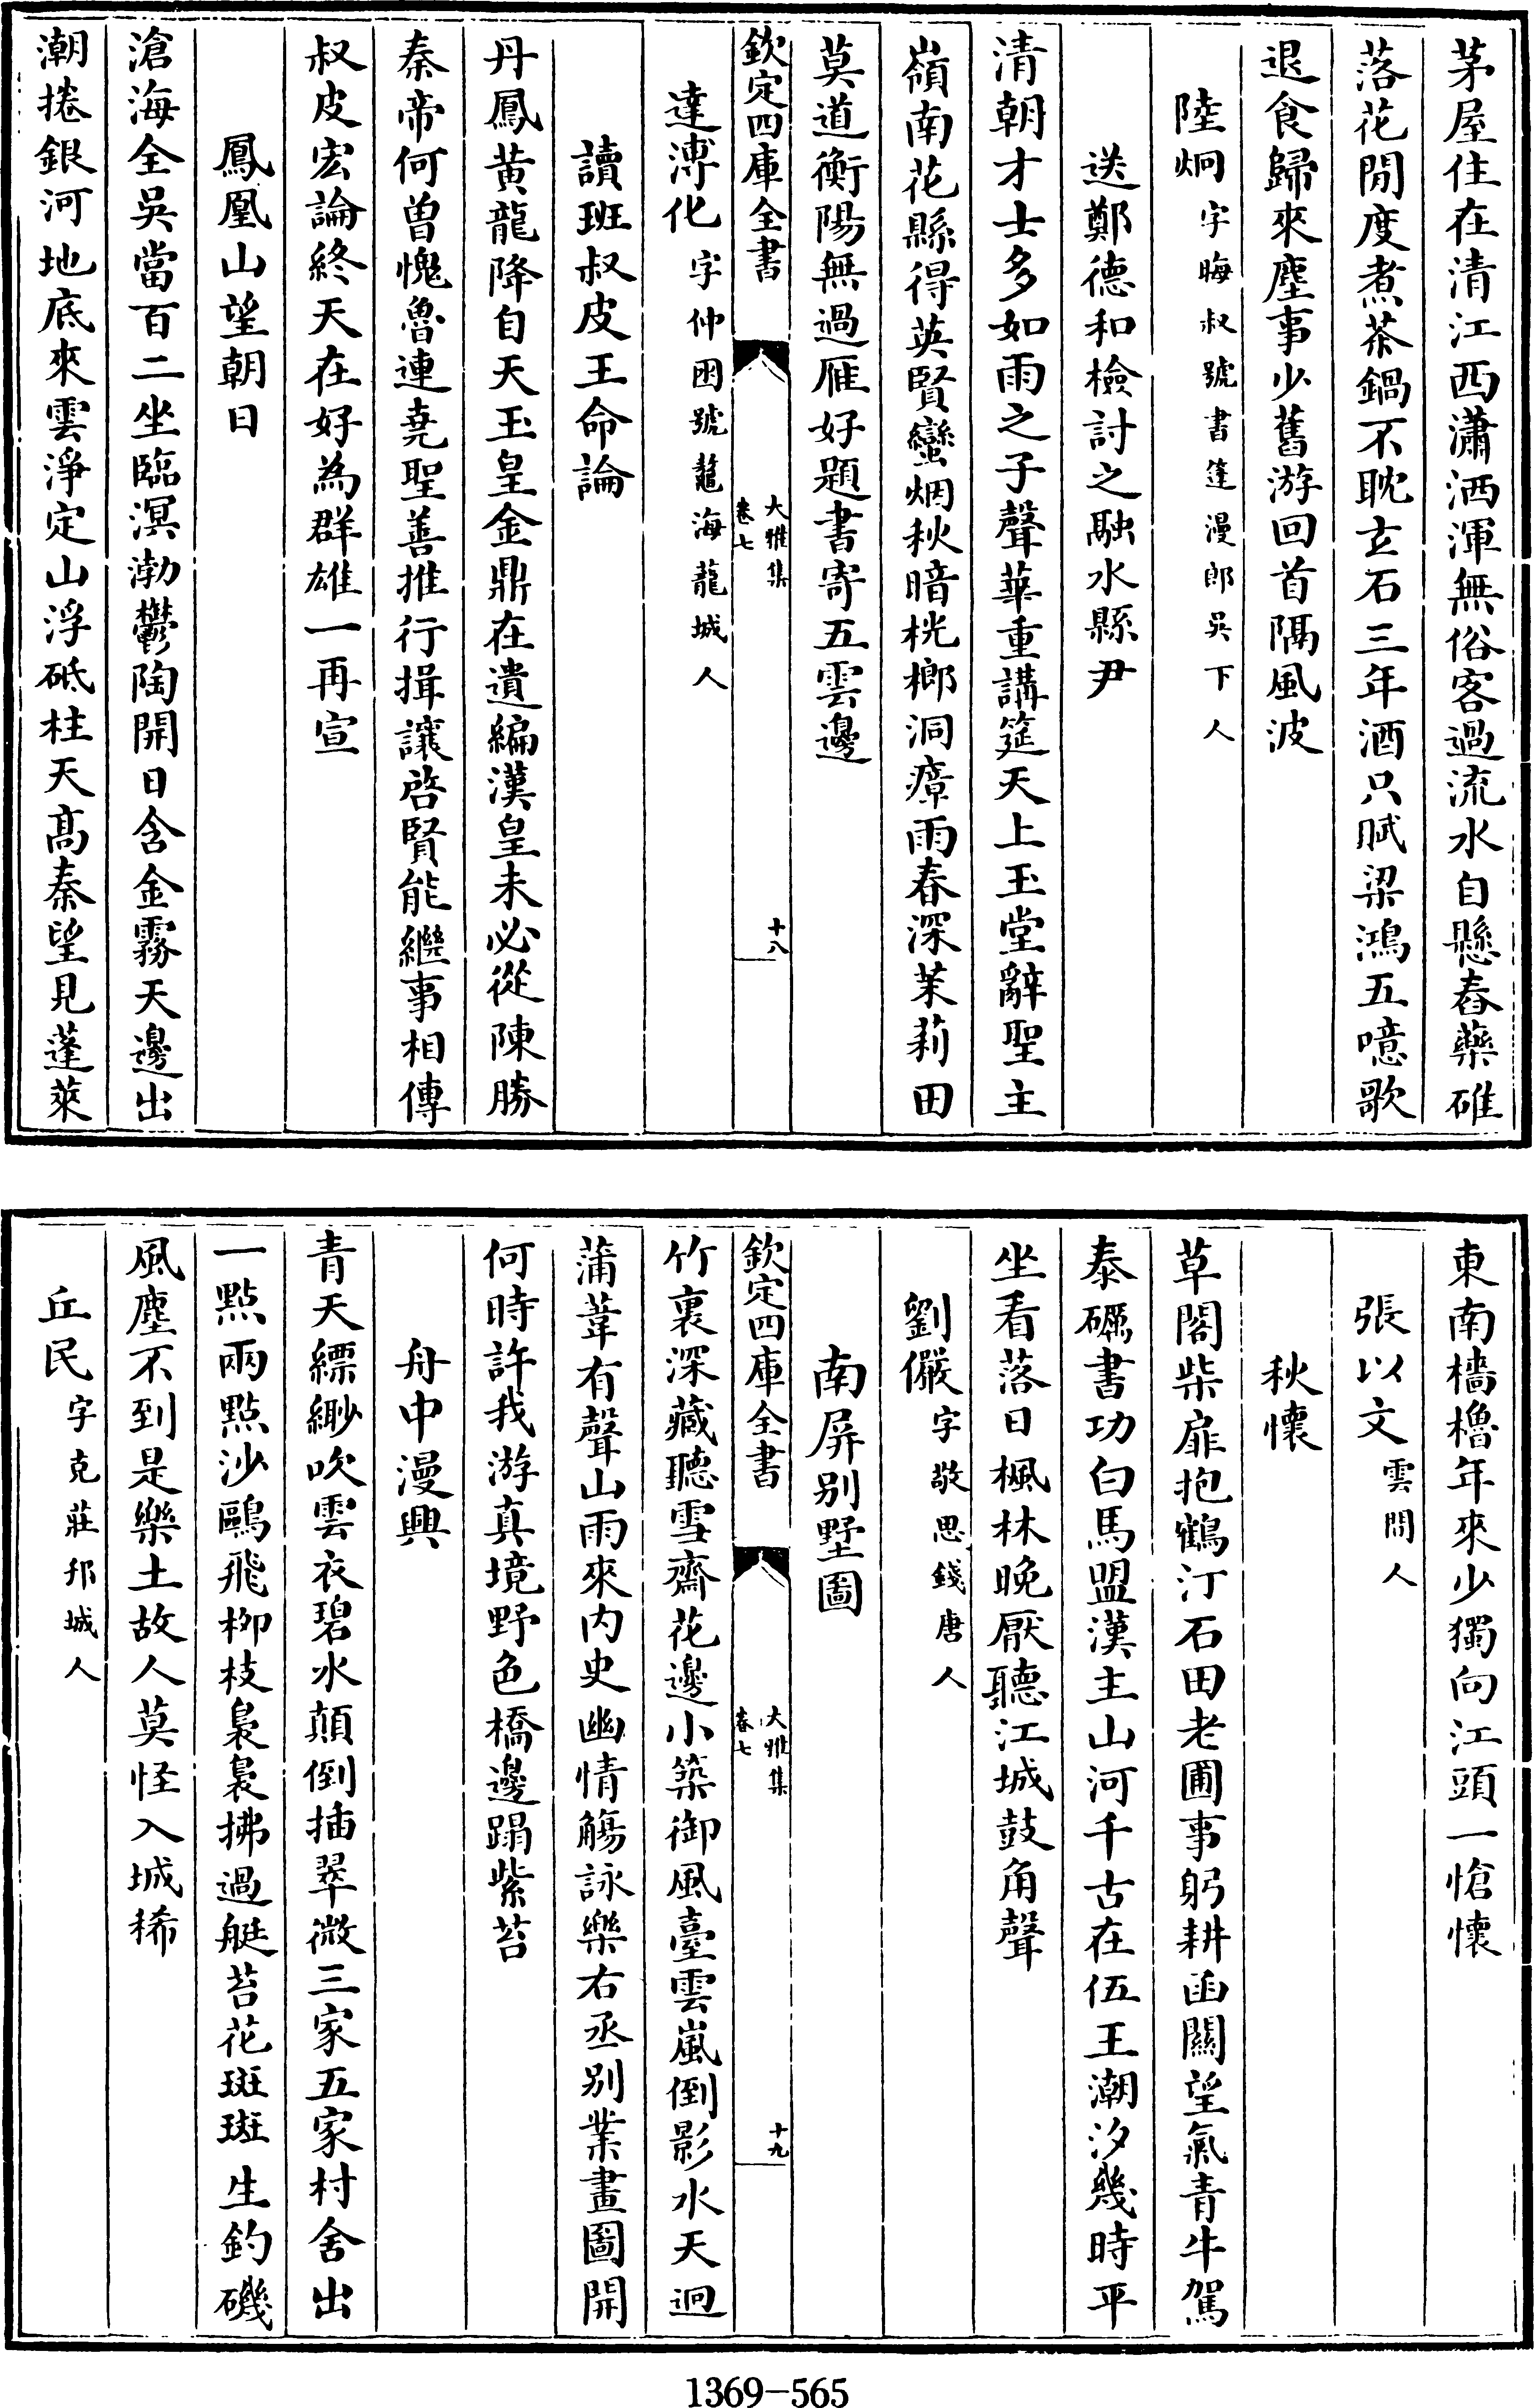 茅屋住在清江西瀟洒渾無俗客過流水自懸舂藥碓
落花閒度煮茶鍋不耽玄石三年酒只賦梁鴻五噫歌
退食歸來塵事少舊游回首隔風波
陸炯字晦叔號書篷漫郎吳下人
送鄭德和檢討之融水縣尹
清朝才士多如雨之子聲華重講筵天上玉堂辭聖主
嶺南花縣得英賢蠻烟秋暗桄榔洞瘴雨春深茉莉田
莫道衡陽無過雁好題書寄五雲邊
欽定四庫全書
大雅集
卷七
十八
達溥化字仲困號鼇海龍城人
讀班叔皮王命論
丹鳳黃龍降自天玉皇金鼎在遺編漢皇未必從陳勝
秦帝何曽愧魯連堯聖善推行揖讓啓賢能繼事相傳
叔皮宏論終天在好為群雄一再宣
鳳凰山望朝日
滄海全吳當百二坐臨溟渤鬱陶開日含金霧天邊出
潮捲銀河地底來雲淨定山浮砥柱天髙秦望見蓬萊
東南檣櫓年來少獨向江頭一愴懷
張以文雲間人
秋懷
草閣柴扉抱鶴汀石田老圃事躬耕函關望氣青牛駕
泰礪書功白馬盟漢主山河千古在伍王潮汐幾時平
坐看落日楓林晚厭聽江城鼓角聲
劉儼字敬思錢唐人
南屏別墅圖
欽定四庫全書
大雅集
卷七
十九
竹裏深藏聽雪齋花邊小築御風臺雲嵐倒影水天迥
蒲葦有聲山雨來內史幽情觴詠樂右丞別業畫圖開
何時許我游真境野色橋邊蹋紫苔
舟中漫興
青天縹緲吹雲衣碧水顛倒插翠微三家五家村舍出
一點兩點沙鷗飛柳枝裊裊拂過艇苔花斑斑生釣磯
風塵不到是樂土故人莫怪入城稀
丘民字克莊邦城人
1369-565